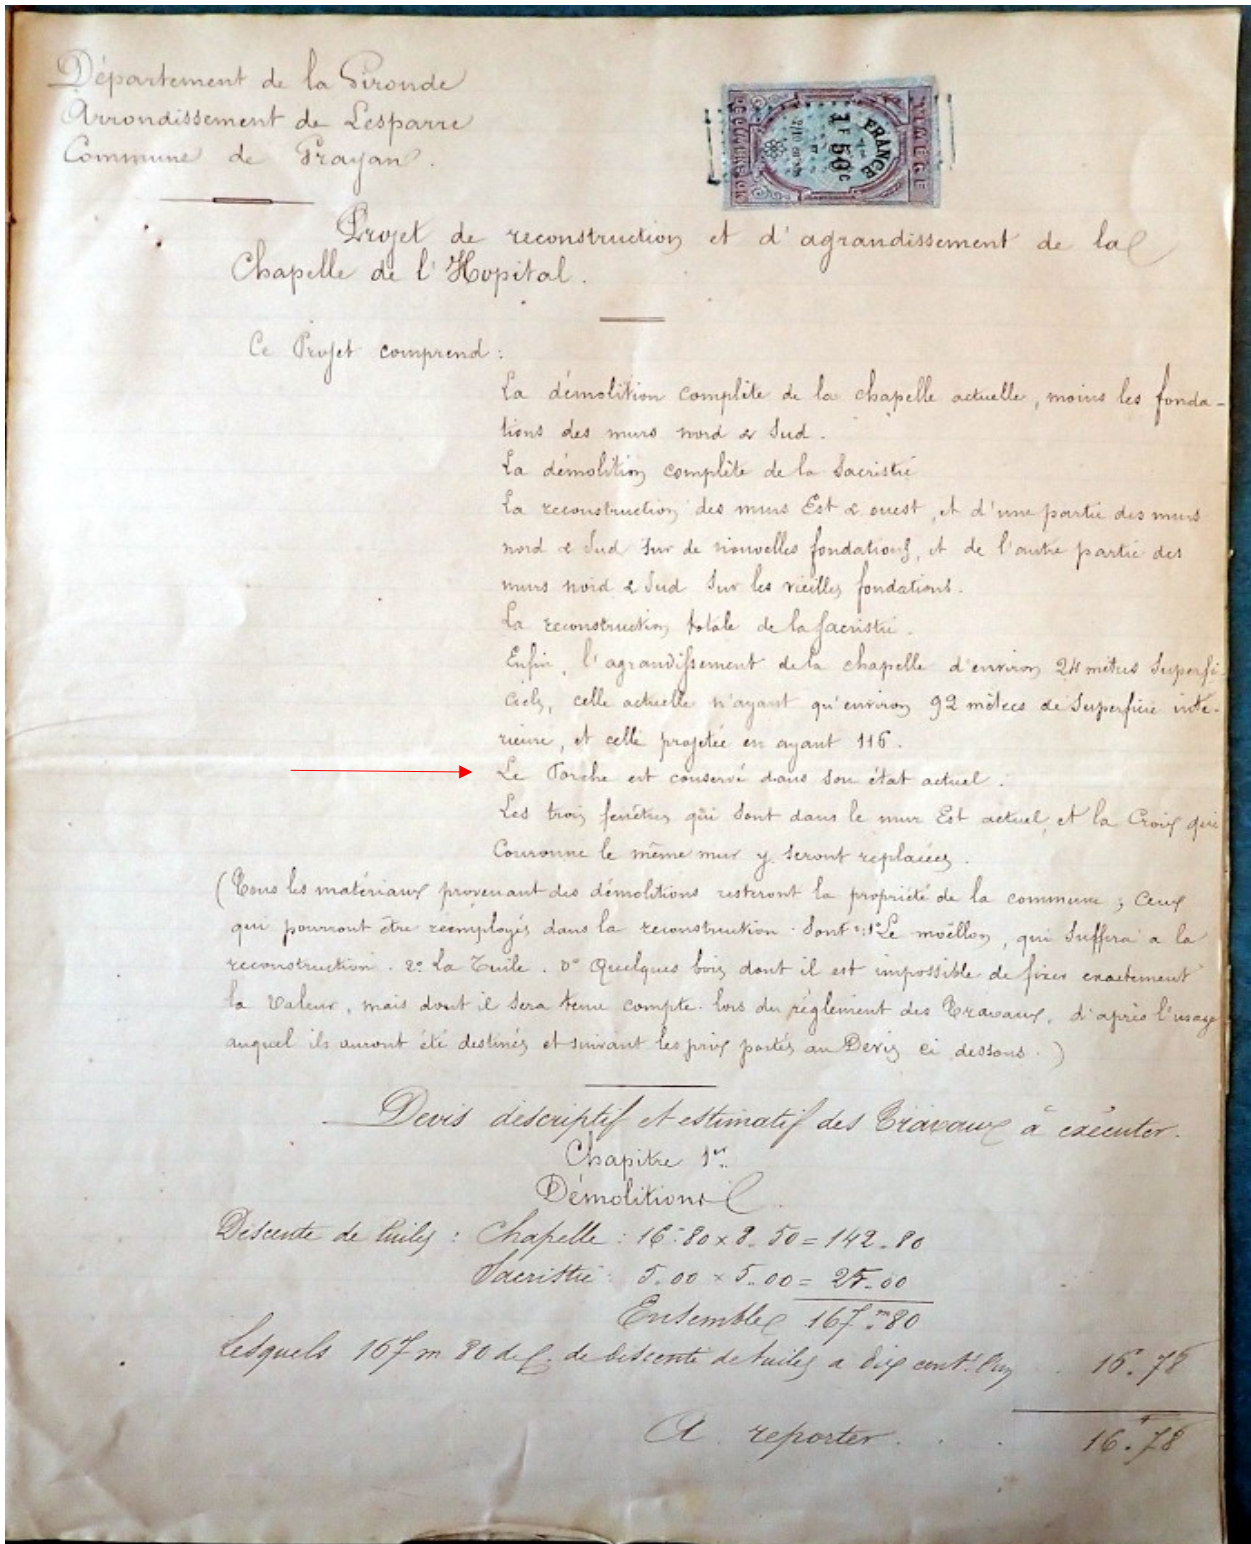 Département de la Gironde
Arrondissement de Lesparre
Commune de Grayan.
TIMBRE
FRANCE
1F 50c
2/10 en sus
Projet de reconstruction et d'agrandissement de la
Chapelle de l'Hopital.
Ce Projet comprend :
La démolition complète de la chapelle actuelle, moins les fonda-
tions des murs nord & Sud.
La démolition complète de la Sacristie
La reconstruction des murs Est & ouest, et d'une partie des murs
nord & Sud sur de nouvelles fondations, et de l'autre partie des
murs nord & Sud sur les vieilles fondations.
La reconstruction totale de la sacristie.
Enfin, l'agrandissement de la chapelle d'environ 24 mètres superfi-
ciels, celle actuelle n'ayant qu'environ 92 mètres de superficie inté-
rieure, et celle projetée en ayant 116.
Le Porche est conservé dans son état actuel.
Les trois fenêtres qui sont dans le mur Est actuel, et la Croix qui
Couronne le même mur y seront replacées.
(Tous les matériaux provenant des démolitions resteront la propriété de la commune ; Ceux
qui pourront être réemployés dans la reconstruction sont : 1° Le moëllon, qui suffira a la
reconstruction. 2° La Tuile. 3° Quelques bois dont il est impossible de fixer exactement
la Valeur, mais dont il sera tenu compte lors du règlement des Travaux, d'après l'usage
auquel ils auront été destinés et suivant les prix portés au Devis ci dessous.)
Devis descriptif et estimatif des Travaux à exécuter.
Chapitre 1er.
Démolitions.
Descente de tuiles : Chapelle : 16.80 x 8.50 = 142.80
Sacristie : 5.00 x 5.00 = 25.00
Ensemble 167.m80
Lesquels 167 m 80 de descente de tuiles a dix cent. l'un 16.78
A reporter. . . 16.78